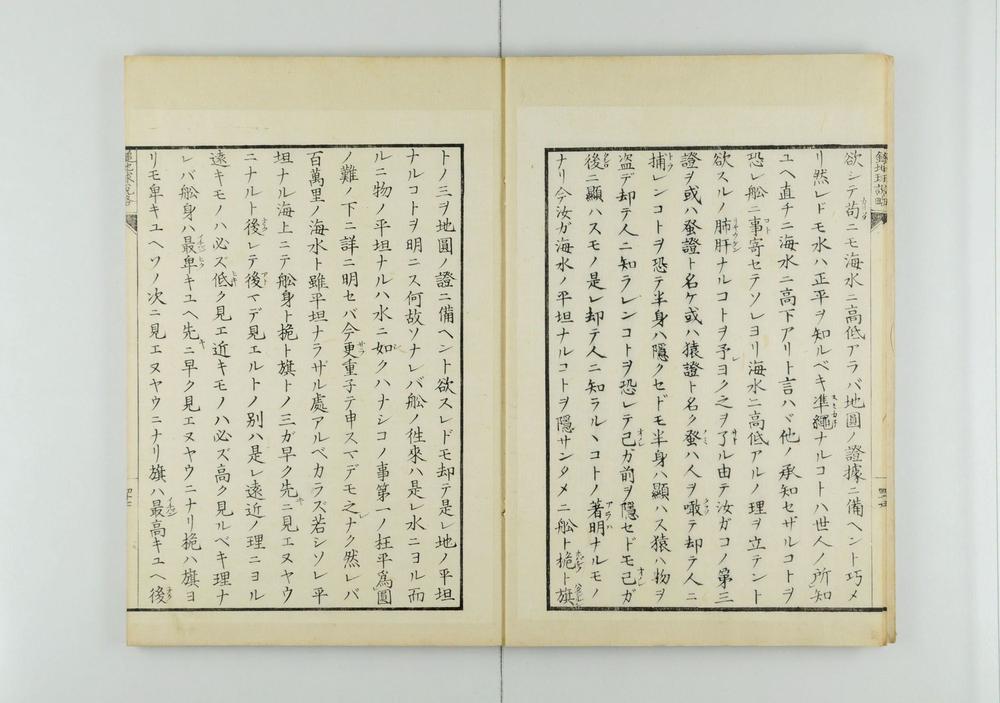 欲シテ苟ニモ海水ニ高低アラバ地圓ノ證據ニ備ヘント巧メ
リ然レドモ水ハ正平ヲ知ルベキ準繩ナルコトハ世人ノ所知
ユヘ直チニ海水ニ高下アリト言ハヾ他ノ承知セザルコトヲ
恐レ船ニ事寄セテソレヨリ海水ニ高低アルノ理ヲ立テント
欲スルノ肺肝ナルコトヲ予ヨク之ヲ了ル由テ汝ガコノ第三
證ヲ或ハ蚤證ト名ケ或ハ猿證ト名ク蚤ハ人ヲ噉テ却テ人ニ
捕レンコトヲ恐テ半身ハ隱クセドモ半身ハ顯ハス猿ハ物ヲ
盗デ却テ人ニ知ラレンコトヲ恐レテ己ガ前ヲ隱セドモ己ガ
後ニ顯ハスモノ是レ却テ人ニ知ラルヽコトノ著明ナルモノ
ナリ今汝ガ海水ノ平坦ナルコトヲ隱サンタメニ船ト桅ト旗
トノ三ヲ地圓ノ證ニ備ヘント欲スレドモ却テ是レ地ノ平坦
ナルコトヲ明ニス何故ソナレバ船ノ徃來ハ是レ水ニヨル而
ルニ物ノ平坦ナルハ水ニ如クハナシコノ事第一ノ枉平爲圓
ノ難ノ下ニ詳ニ明セバ今更重子テ申スマデモ之ナク然レバ
百萬里ノ海水ト雖平坦ナラザル處アルベカラズ若シソレ平
坦ナル海上ニテ船身ト桅ト旗トノ三ガ早ク先ニ見エヌヤウ
ニナルト後レテ後マデ見エルトノ別ハ是レ遠近ノ理ニヨル
遠キモノハ必ズ低ク見エ近キモノハ必ズ高ク見ルベキ理ナ
レバ船身ハ最卑キユヘ先ニ早ク見エヌヤウニナリ桅ハ旗ヨ
リモ卑キユヘソノ次ニ見エヌヤウニナリ旗ハ最高キユヘ後